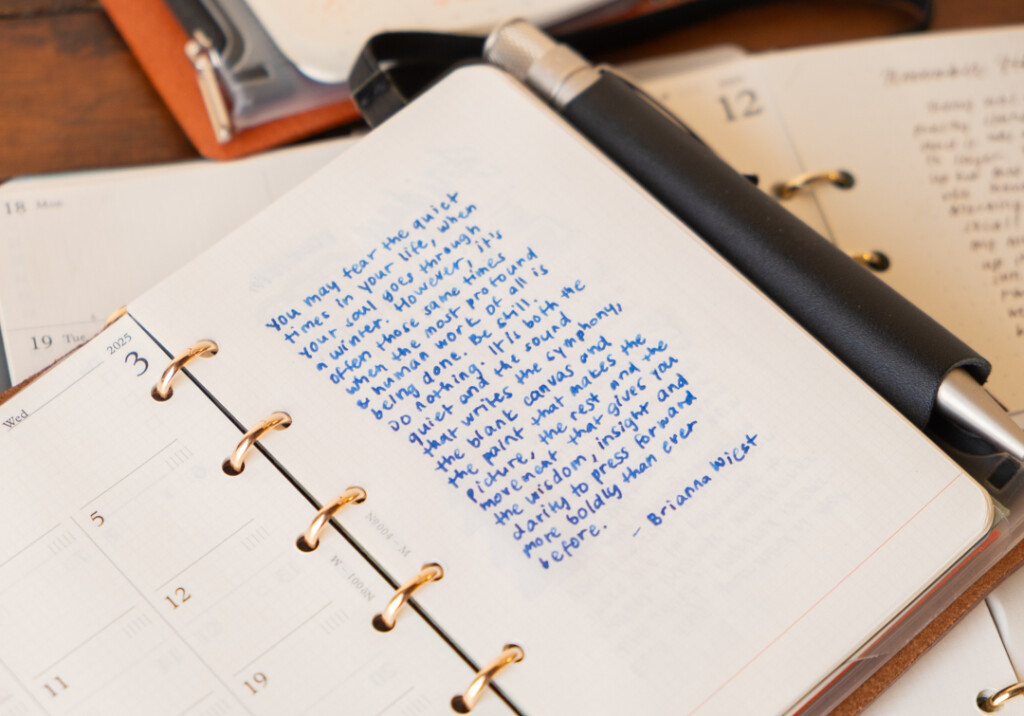 You may fear the quiet
times in your life, when
your soul goes through
a winter. However, it's
often those same times
when the most profound
& human work of all is
being done. Be still.
Do nothing. It's both the
quiet and the sound
that writes the symphony,
the blank canvas and
the paint that makes the
picture, the rest and the
movement that gives you
the wisdom, insight and
clarity to press forward
more boldly than ever
before.
- Brianna Wiest
2025
3
Wed
5
12
11
19
18 Mon
19 Tue
12